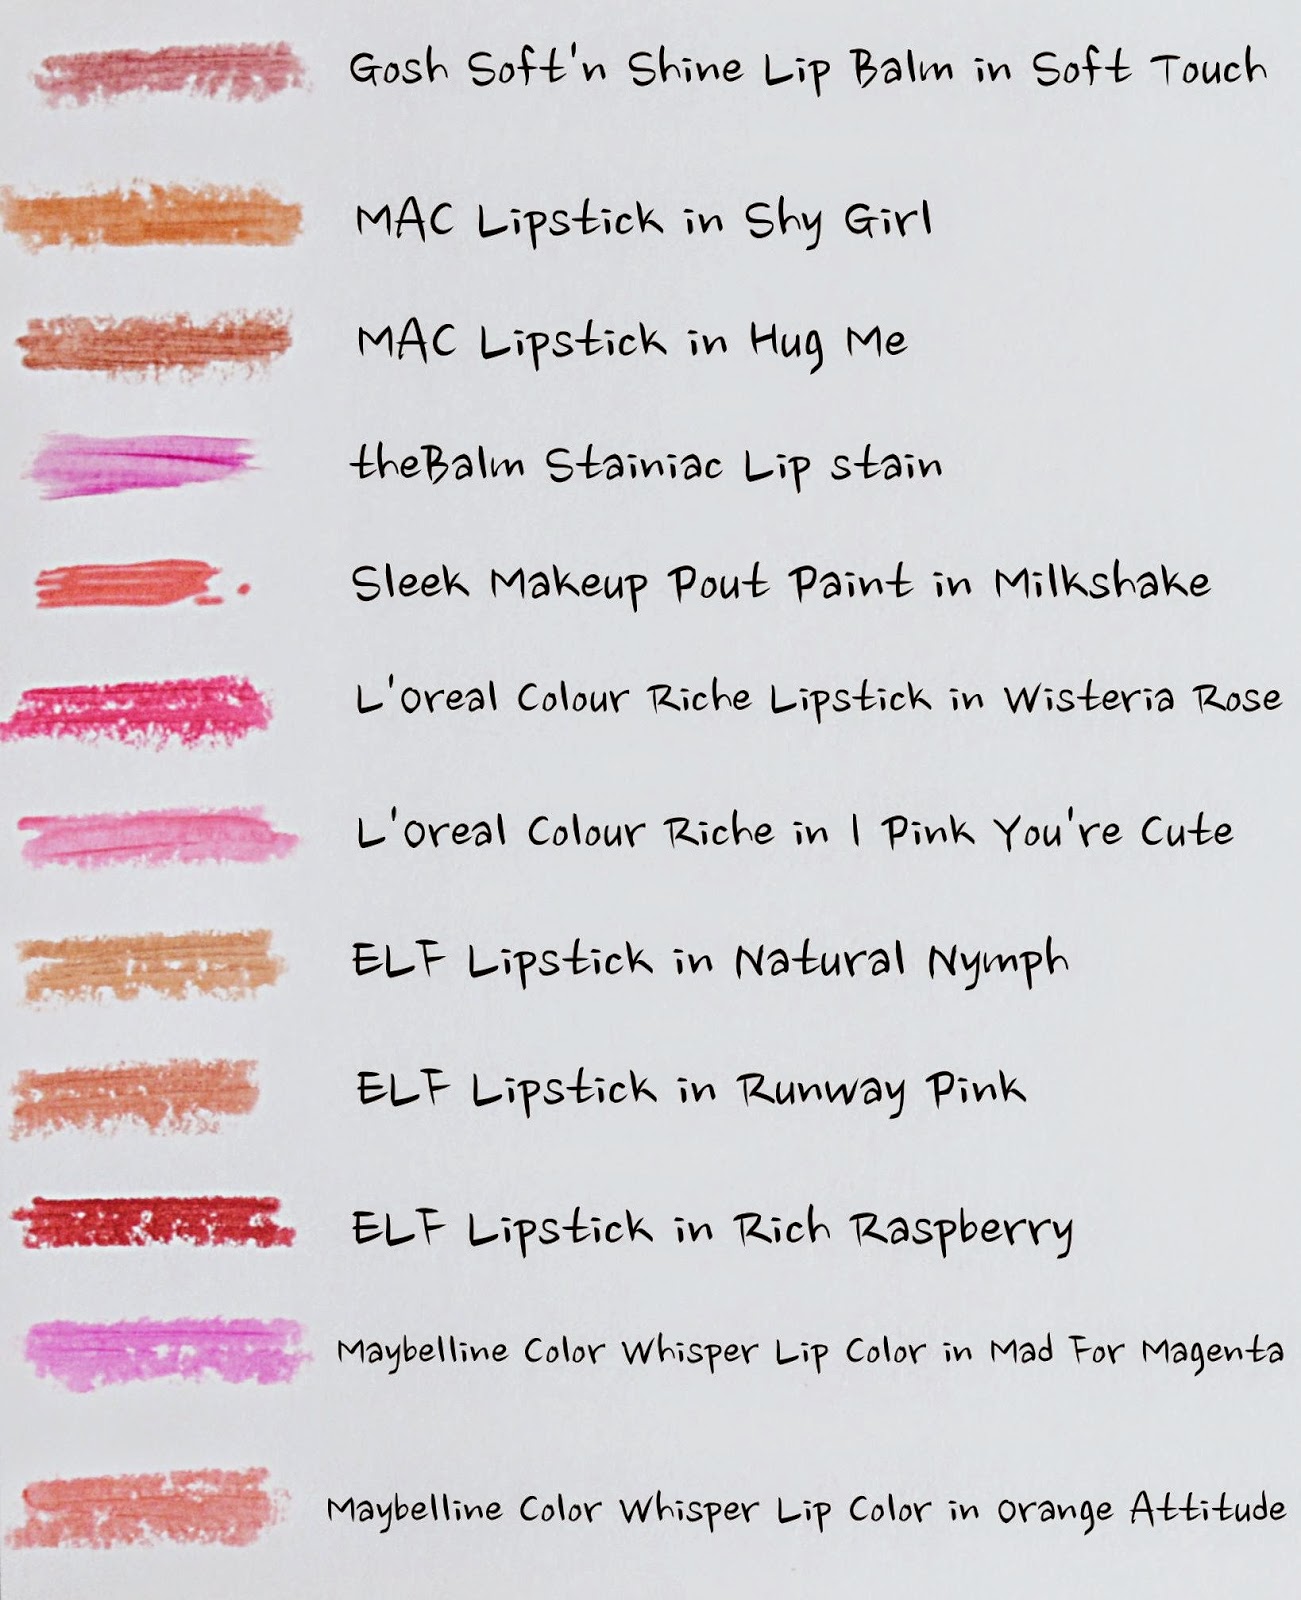 Gosh Soft'n Shine Lip Balm in Soft Touch
MAC Lipstick in Shy Girl
MAC Lipstick in Hug Me
theBalm Stainiac Lip stain
Sleek Makeup Pout Paint in Milkshake
L'oreal Colour Riche Lipstick in Wisteria Rose
L'oreal Colour Riche in I Pink You're Cute
ELF Lipstick in Natural Nymph
ELF Lipstick in Runway Pink
ELF Lipstick in Rich Raspberry
Maybelline Color Whisper Lip Color in Mad For Magenta
Maybelline Color Whisper Lip Color in Orange Attitude